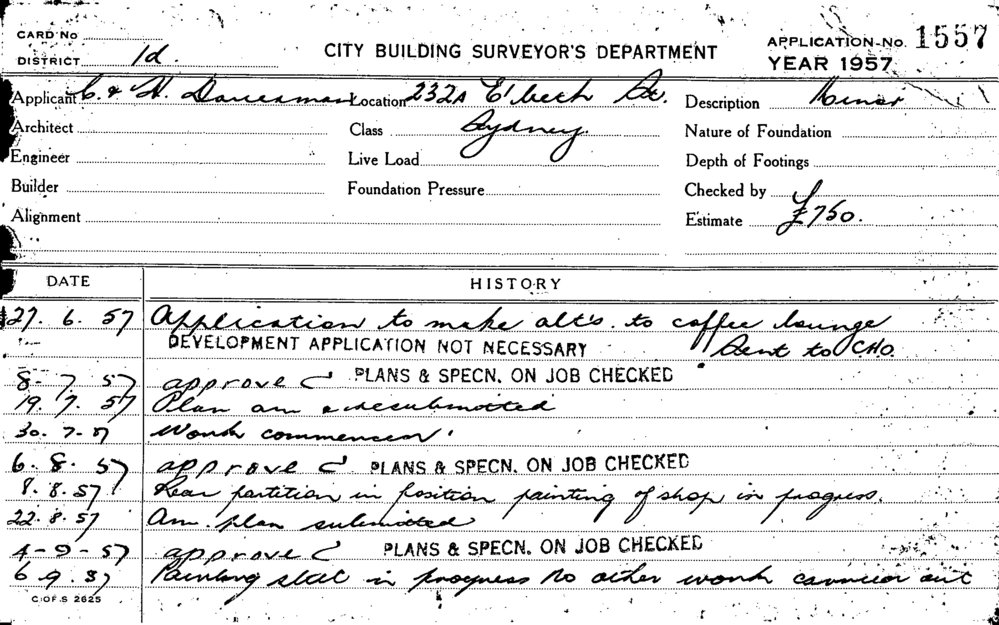 CARD No
DISTRICT 1d.
CITY BUILDING SURVEYOR'S DEPARTMENT
APPLICATION No. 1557
YEAR 1957
Applicant C. & H. Location 232A E'beth St. Description Minor
Architect Class Sydney. Nature of Foundation
Engineer Live Load Depth of Footings
Builder Foundation Pressure Checked by
Alignment Estimate £750.
DATE HISTORY
27. 6. 57 Application to make alt's. to coffee lounge
DEVELOPMENT APPLICATION NOT NECESSARY Sent to CHO.
8- 7. 57 approved PLANS & SPECN. ON JOB CHECKED
19. 7. 57 Plan am & resubmitted
30. 7-57 Work commenced.
6. 8. 57 approved PLANS & SPECN. ON JOB CHECKED
8. 8. 57 Rear partition in position painting of shop in progress.
22. 8. 57 Am. plan submitted
4-9-57 approved PLANS & SPECN. ON JOB CHECKED
6 9. 57 Painting still in progress No other work carried out
C OF S 2625